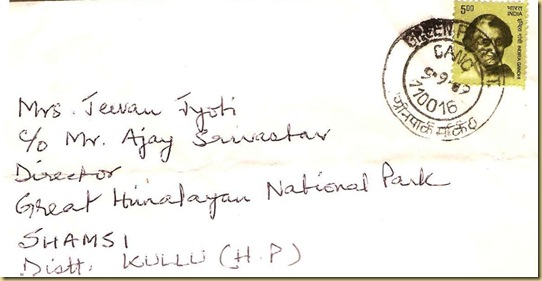 5.00 भारत INDIA
इंदिरा गांधी INDIRA GANDHI
GREEN P
CANC
9-9-
110016
ग्रीनपार्क मार्केट
Mrs. Jeevan Jyoti
c/o Mr. Ajay Srivastav
Director
Great Himalayan National Park
SHAMSI
Distt. KULLU (H.P)